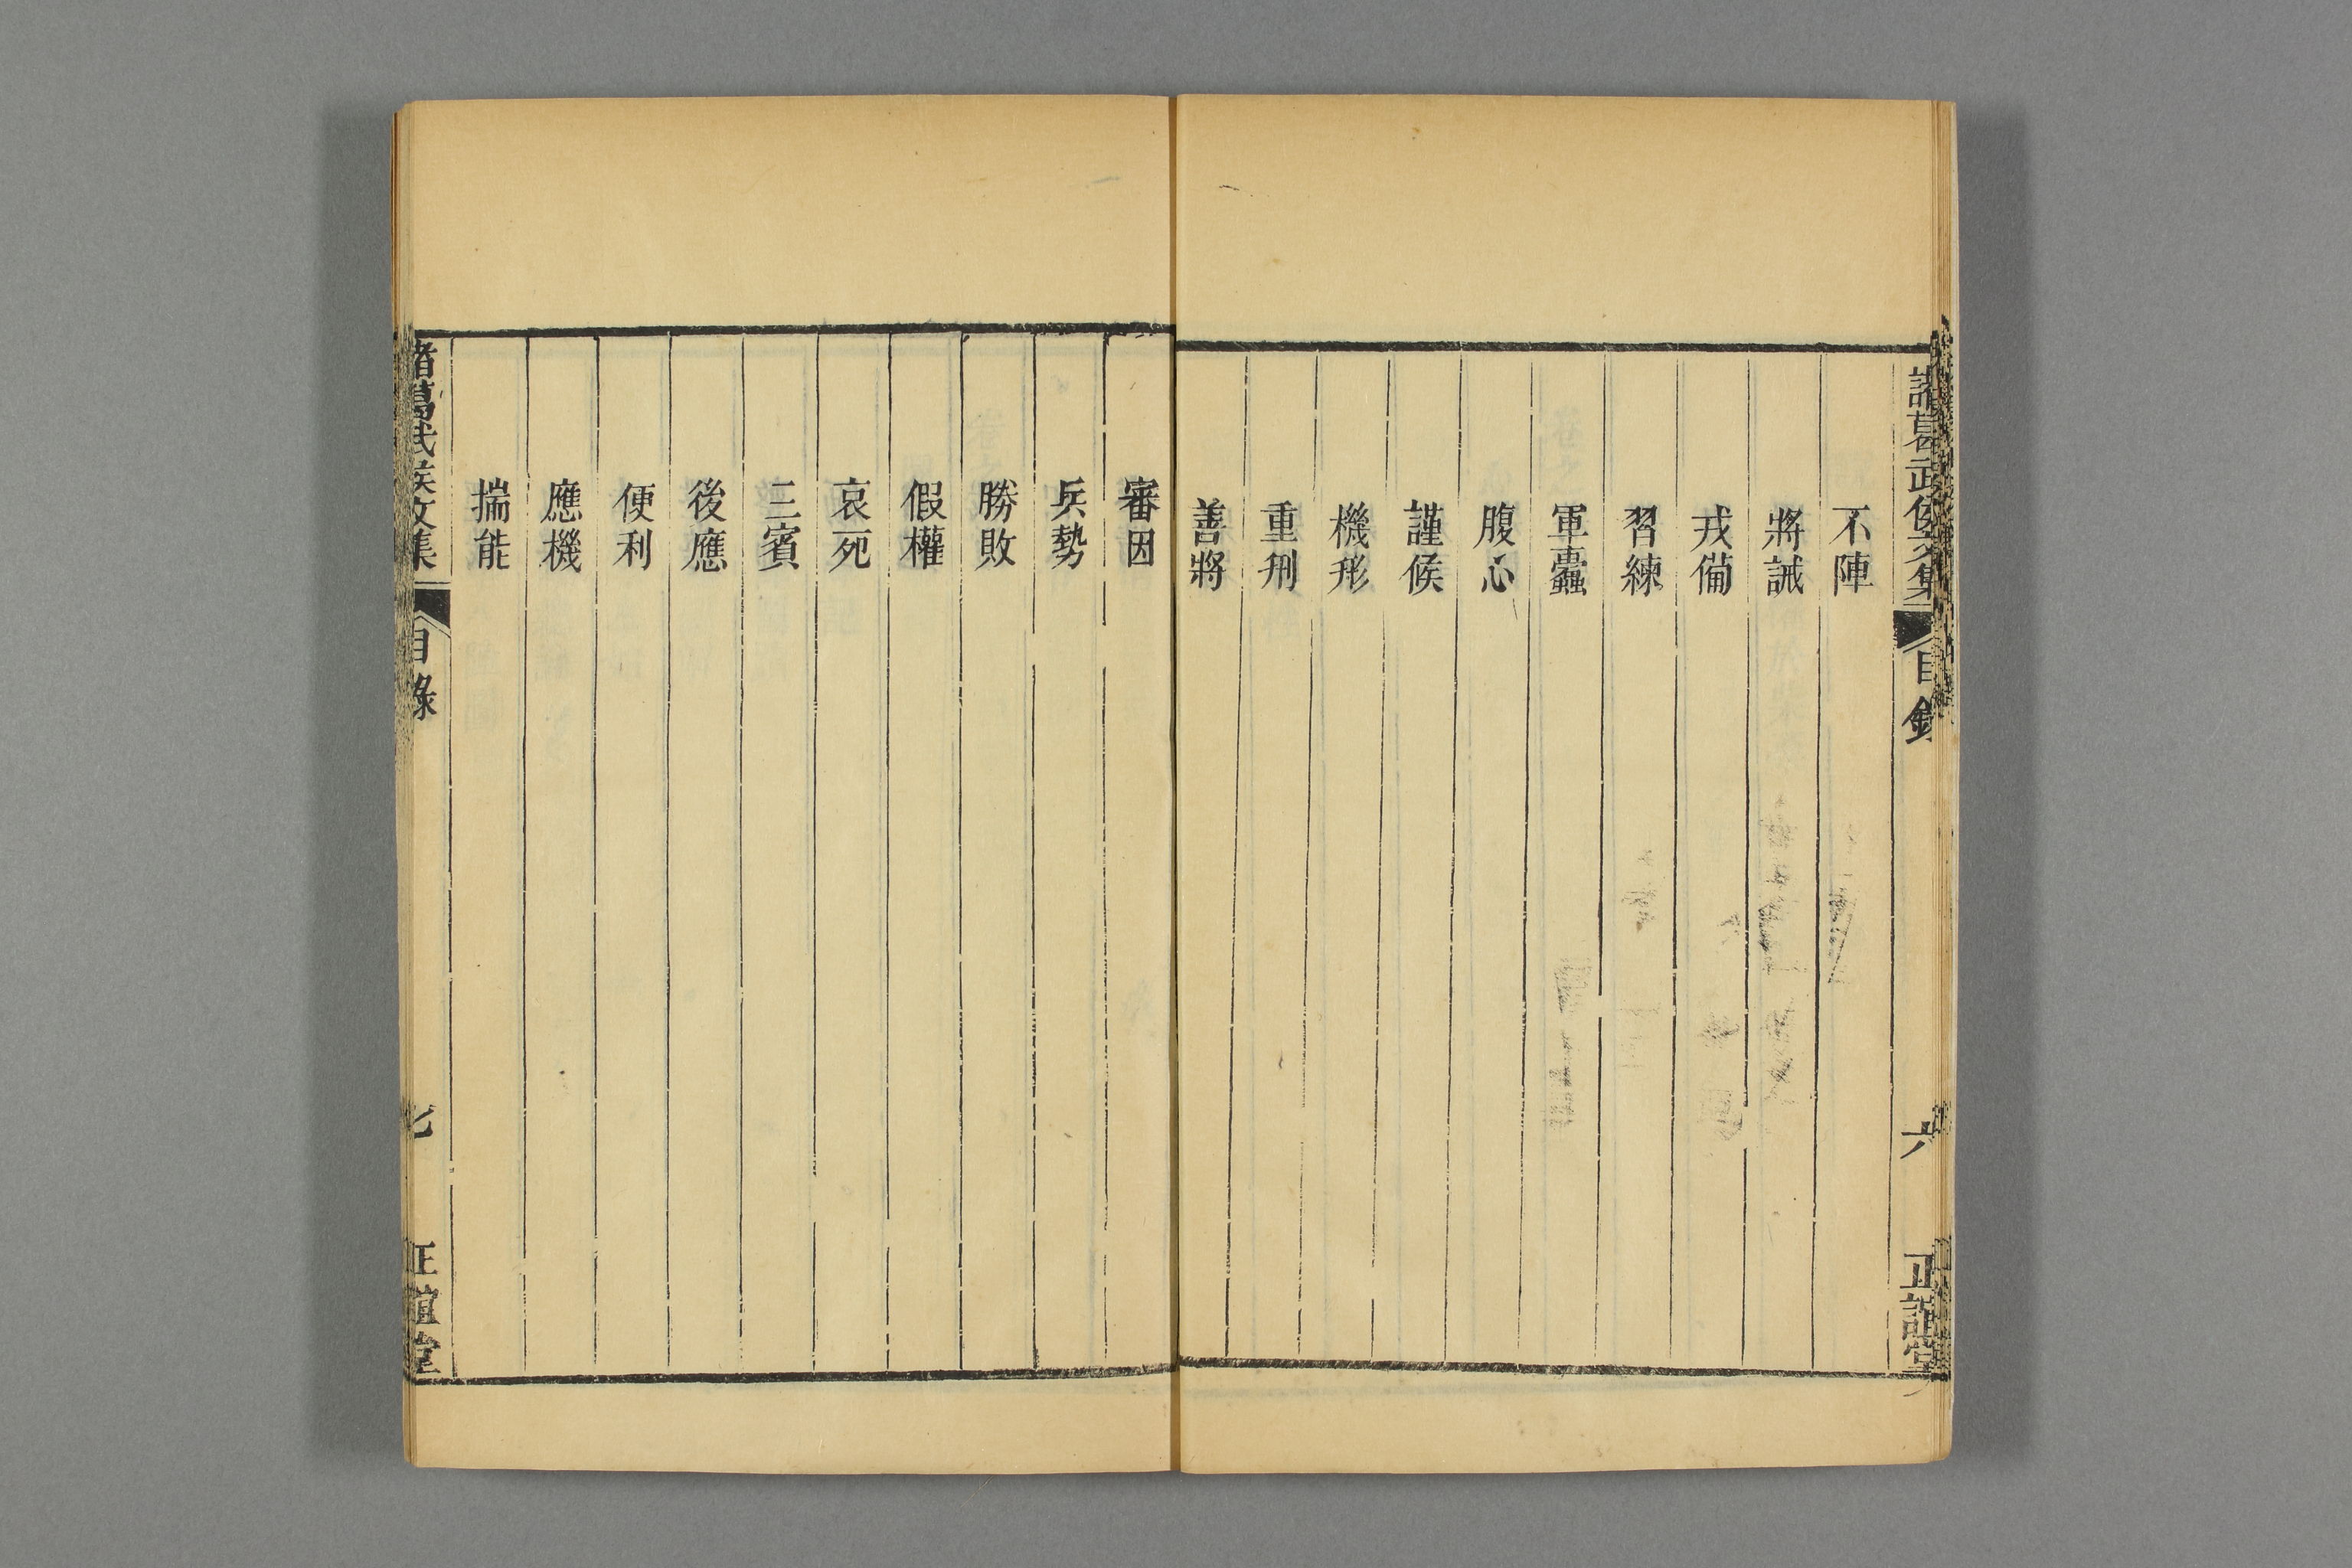 諸葛武侯文集
目錄
六
正誼堂
不陣
將誡
戎備
習練
軍蠹
腹心
謹候
機形
重刑
善將
審因
兵勢
勝敗
假權
哀死
三賓
後應
便利
應機
揣能
諸葛武侯文集
目錄
七
正誼堂